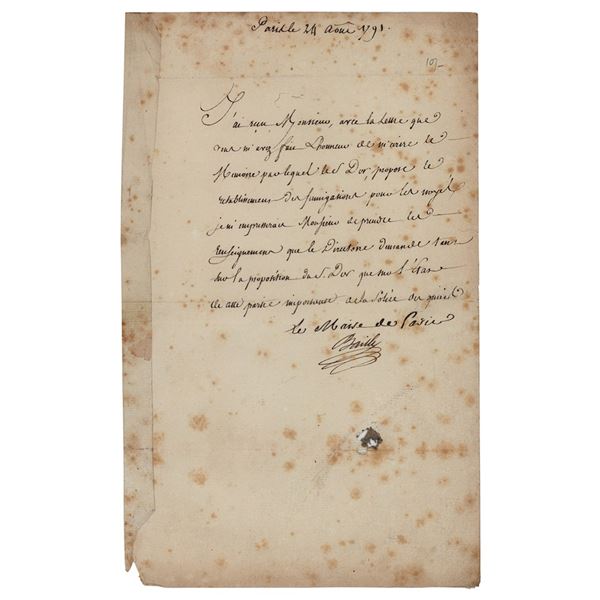 Paris le 24 Aout 1791.
107
J'ai reçu Monsieur, avec la Lettre que
vous m'avez fait L'honneur de m'écrire le
Memoire par lequel le S. Dor, propose le
Etablissement des fumigations pour les noyés
je m'empresserai Monsieur de prendre les
Renseignemens que le Directoire demande tant
sur la proposition du S. Dor que sur l'État
de cette partie importante de la Police
Le Maire de Paris
Bailly